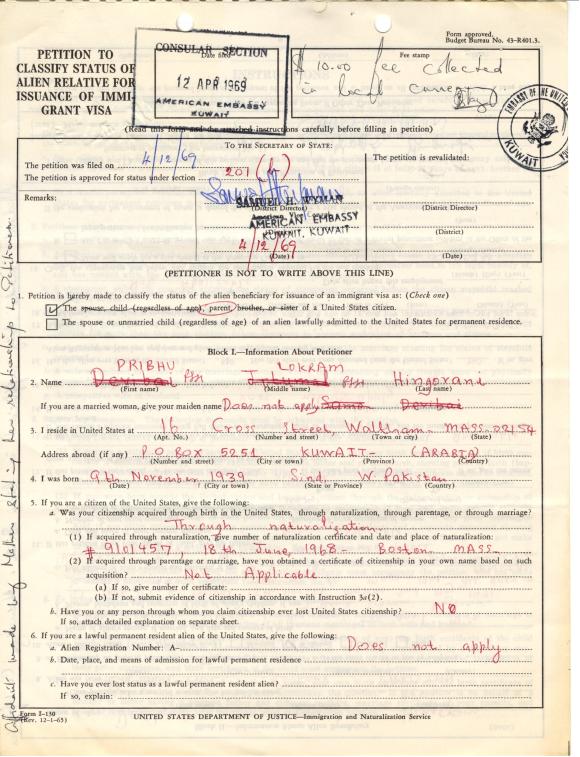 Form approved.
Budget Bureau No. 43-R401.3.
PETITION TO
CLASSIFY STATUS OF
ALIEN RELATIVE FOR
ISSUANCE OF IMMI-
GRANT VISA
CONSULAR SECTION
Date filed
12 APR 1969
AMERICAN EMBASSY
KUWAIT
Fee stamp
$ 10.00 fee collected
in local currency
EMBASSY OF THE UNITED
KUWAIT
(Read this form and the attached instructions carefully before filling in petition)
TO THE SECRETARY OF STATE:
The petition was filed on 4/12/69
The petition is approved for status under section 201 (b)
Remarks:
SAMUEL H. WYMAN
(District Director)
American Vice Consul
AMERICAN EMBASSY
KUWAIT, KUWAIT
4/12/69
(Date)
The petition is revalidated:
(District Director)
(District)
(Date)
(PETITIONER IS NOT TO WRITE ABOVE THIS LINE)
1. Petition is hereby made to classify the status of the alien beneficiary for issuance of an immigrant visa as: (Check one)
The spouse, child (regardless of age), parent, brother, or sister of a United States citizen.
The spouse or unmarried child (regardless of age) of an alien lawfully admitted to the United States for permanent residence.
Block I.—Information About Petitioner
PRIBHU LOKRAM
2. Name Devibai Hingorani
(First name) (Middle name) (Last name)
If you are a married woman, give your maiden name Does not apply Devibai
3. I reside in United States at 16 Cross Street, Waltham - MASS - 02154
(Apt. No.) (Number and street) (Town or city) (State)
Address abroad (if any) P.O. BOX 5251 KUWAIT - (ARABIA)
(Number and street) (City or town) (Province) (Country)
4. I was born 9th November 1939 Sind, W. Pakistan
(Date) (City or town) (State or Province) (Country)
5. If you are a citizen of the United States, give the following:
a. Was your citizenship acquired through birth in the United States, through naturalization, through parentage, or through marriage?
Through naturalization.
(1) If acquired through naturalization, give number of naturalization certificate and date and place of naturalization:
# 9101457, 18th June, 1968 - Boston MASS
(2) If acquired through parentage or marriage, have you obtained a certificate of citizenship in your own name based on such
acquisition? Not Applicable
(a) If so, give number of certificate:
(b) If not, submit evidence of citizenship in accordance with Instruction 3a(2).
b. Have you or any person through whom you claim citizenship ever lost United States citizenship? NO
If so, attach detailed explanation on separate sheet.
6. If you are a lawful permanent resident alien of the United States, give the following:
a. Alien Registration Number: A- Does not apply
b. Date, place, and means of admission for lawful permanent residence
c. Have you ever lost status as a lawful permanent resident alien?
If so, explain:
Form I-130
(Rev. 12-1-65)
UNITED STATES DEPARTMENT OF JUSTICE—Immigration and Naturalization Service
Affidavit made by Mother stating her relationship to Petitioner.